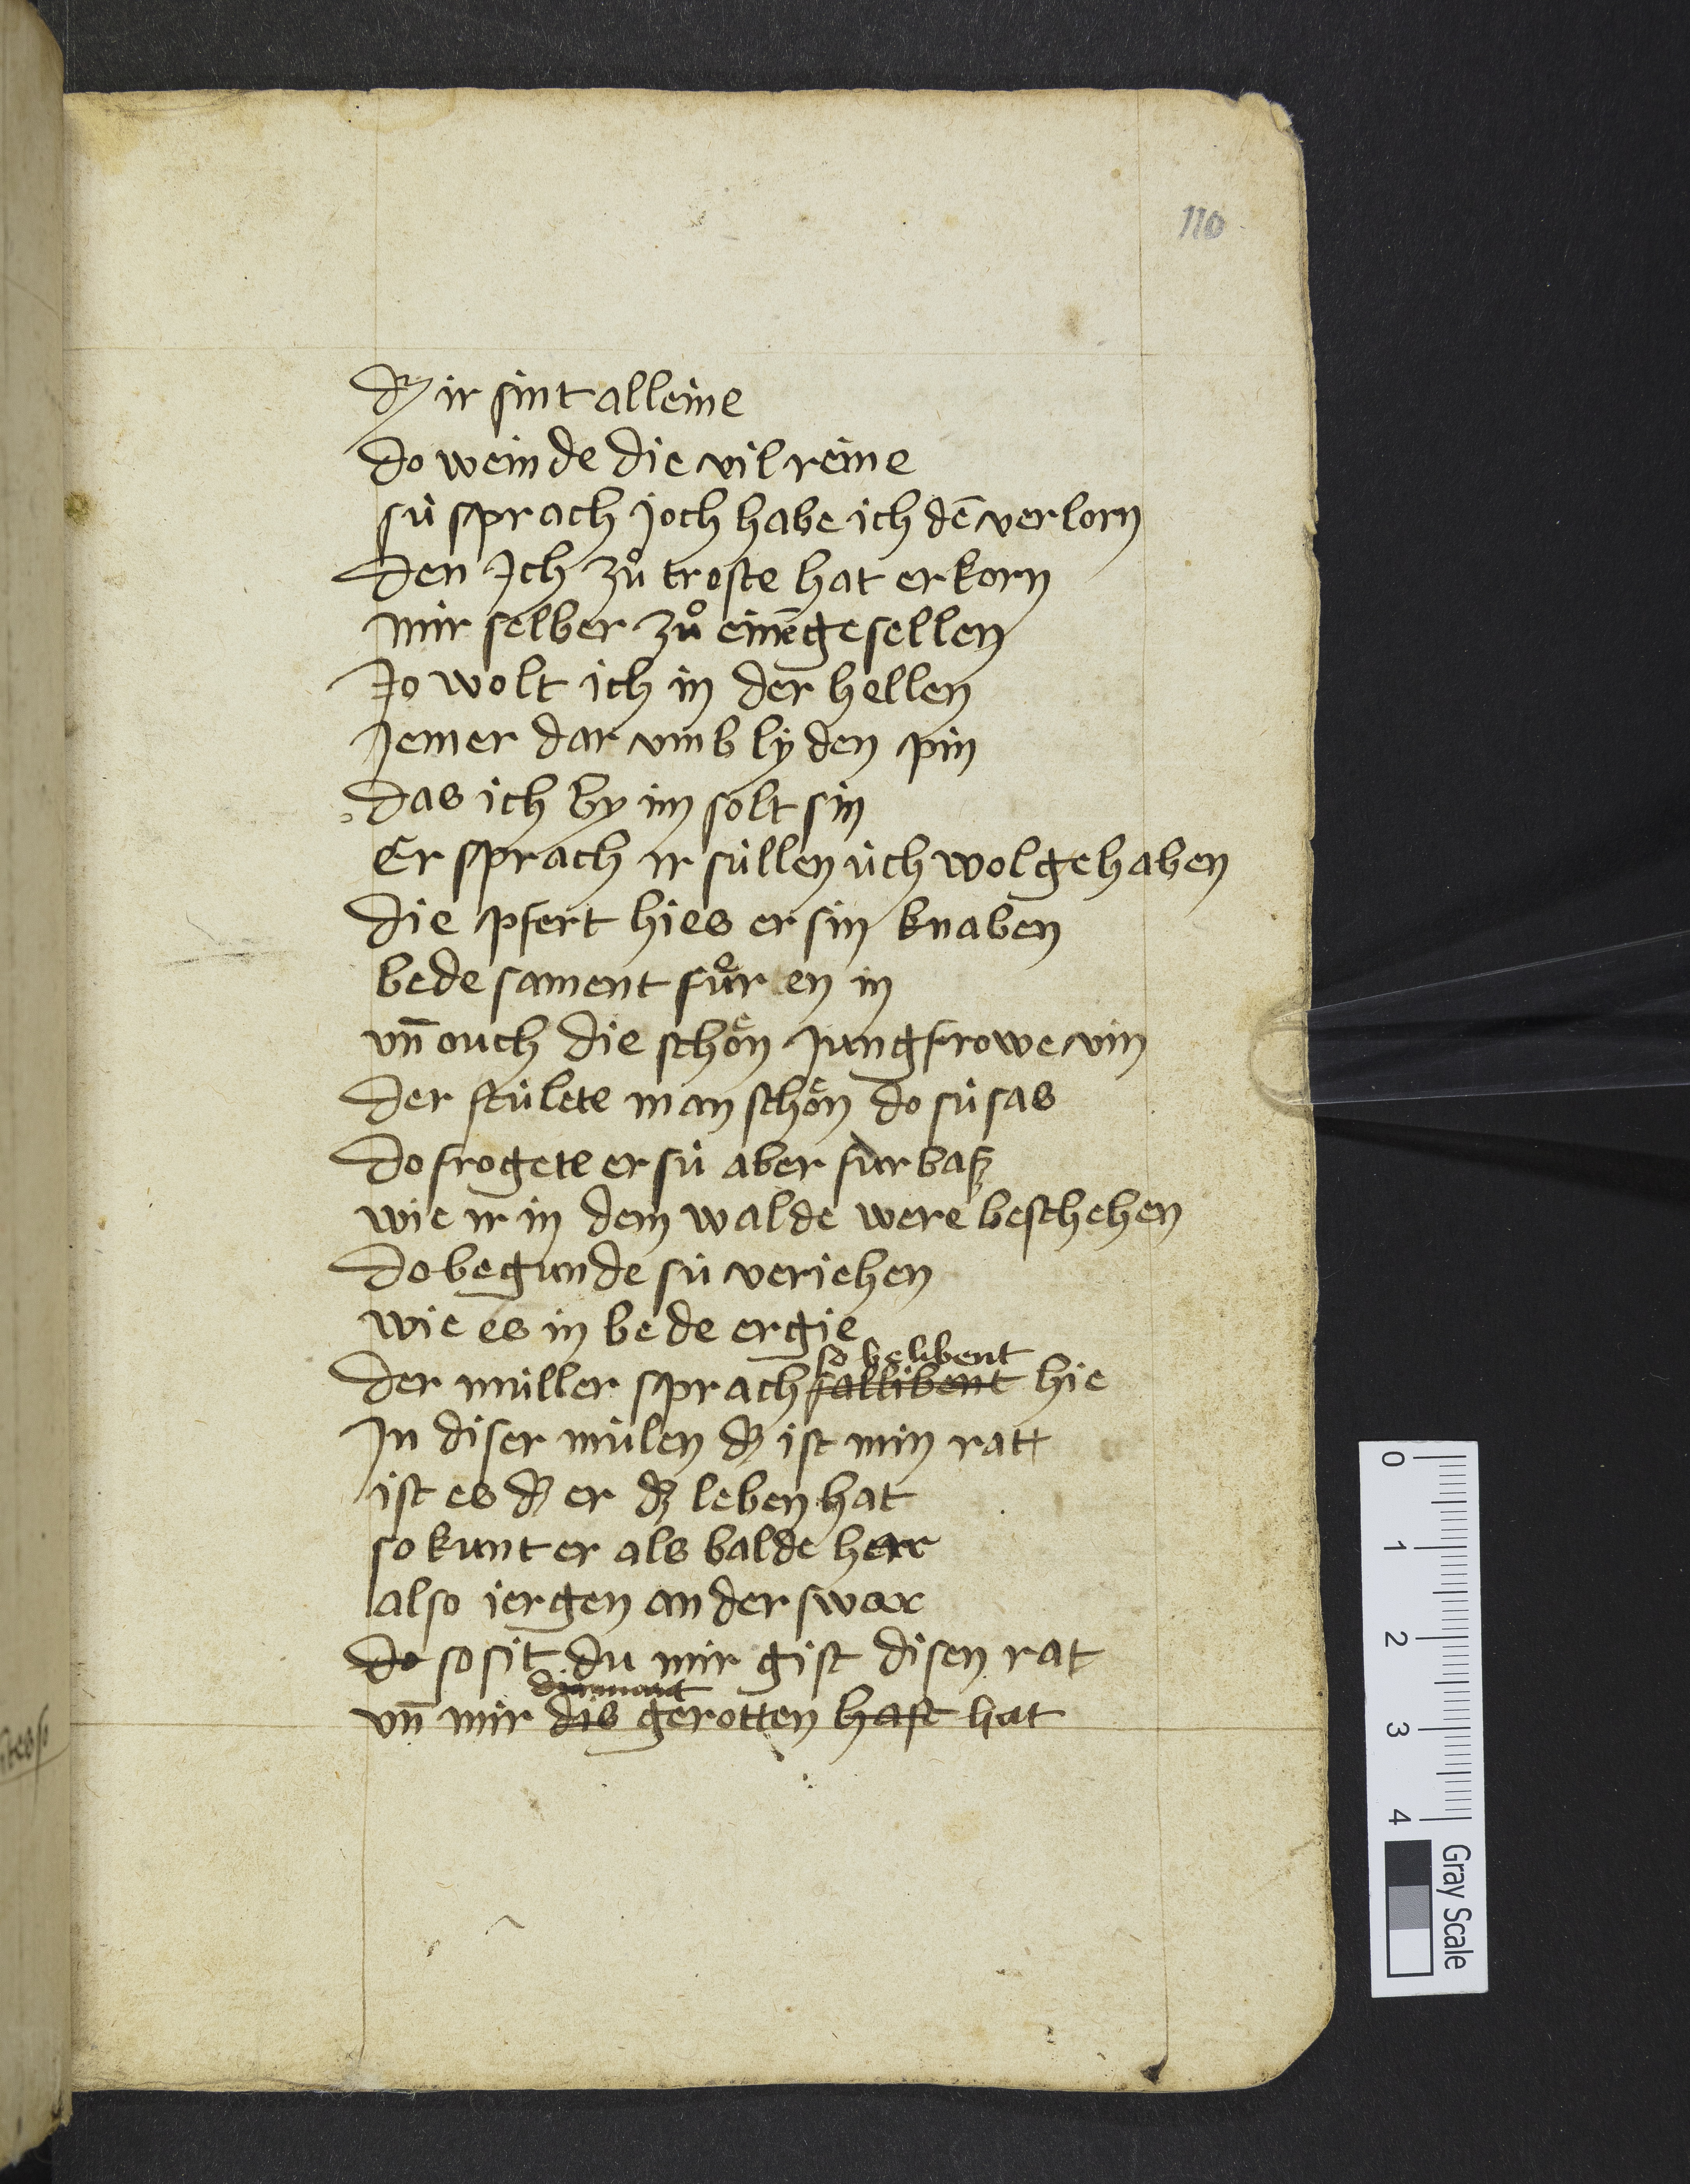 110
dz ir sint alleine
do weinde die vil reine
sú sprach joch habe ich dē verlorn
den Ich zů troste hat erkorn
mir selber zů einē gesellen
Jo wolt ich in der hellen
Jemer dar vmb lyden pin
das ich by im solt sin
Er sprach ir súllen úch wol gehaben
die pfert hies er sin knaben
bede sament fůren in
vn̄ ouch die schoͤn jungfrowe vin
der stúlete man schoͤn do sú sas
do frogete er sú aber fúrbaß
wie ir in dem walde were beschehen
do begunde sú veriehen
wie es in bede ergie
so belibent
der múller sprach sallibent hie
In diser múlen dz ist min ratt
ist es dz er dz leben hat
so kunt er als balde herr
also jergen anderswar
do so sit du mir gist disen rat
diemant
vn̄ mir dis gerotten hast hat
0 1 2 3 4
Gray Scale